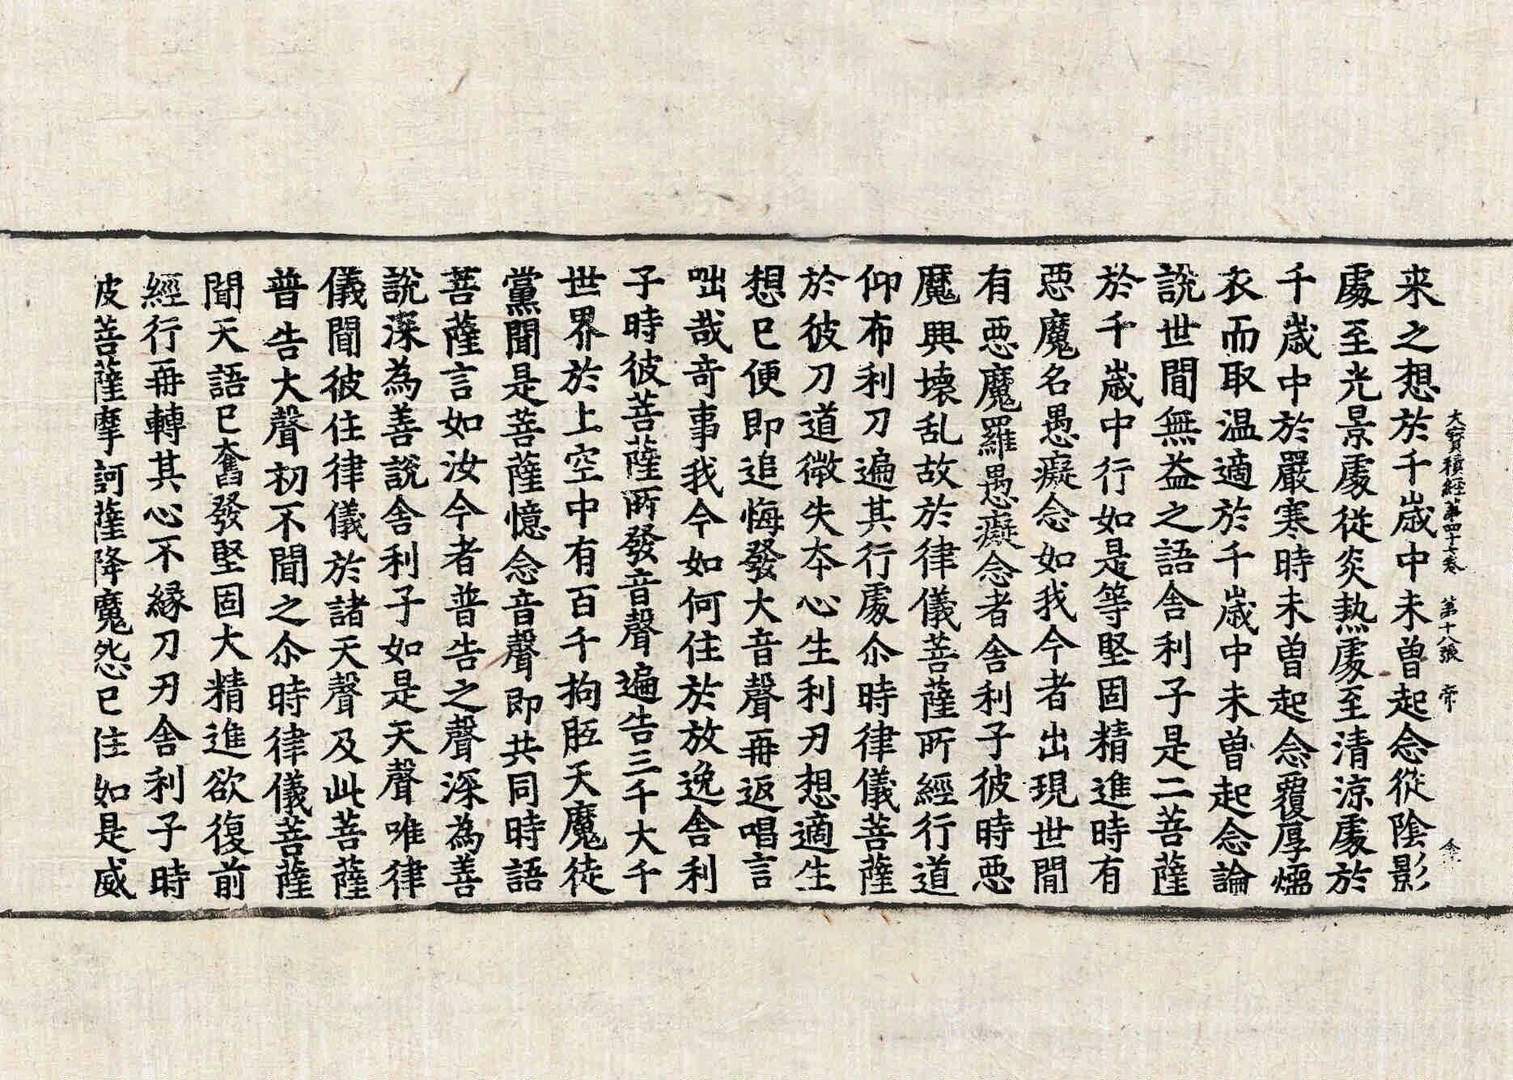 大寶積經第四十七卷　第十八張　帝
来之想於千歳中未曽起念從陰影
處至光景處從炎熱處至清涼處於
千歳中於嚴寒時未曽起念覆厚燸
衣而取温適於千歳中未曽起念論
說世間無益之語舍利子是二菩薩
於千歳中行如是等堅固精進時有
惡魔名愚癡念如我今者出現世間
有惡魔羅愚癡念者舍利子彼時惡
魔興壊乱故於律儀菩薩所經行道
仰布利刀遍其行處尒時律儀菩薩
於彼刀道微失夲心生利刃想適生
想已便即追悔發大音聲再返唱言
咄哉竒事我今如何住於放逸舍利
子時彼菩薩所發音聲遍告三千大千
世界於上空中有百千拘胝天魔徒
黨聞是菩薩憶念音聲即共同時語
菩薩言如汝今者普告之聲深為善
說深為善說舍利子如是天聲唯律
儀聞彼住律儀於諸天聲及此菩薩
普告大聲初不聞之尒時律儀菩薩
聞天語已奮發堅固大精進欲復前
經行再轉其心不緣刀刃舍利子時
彼菩薩摩訶薩降魔怨已住如是威